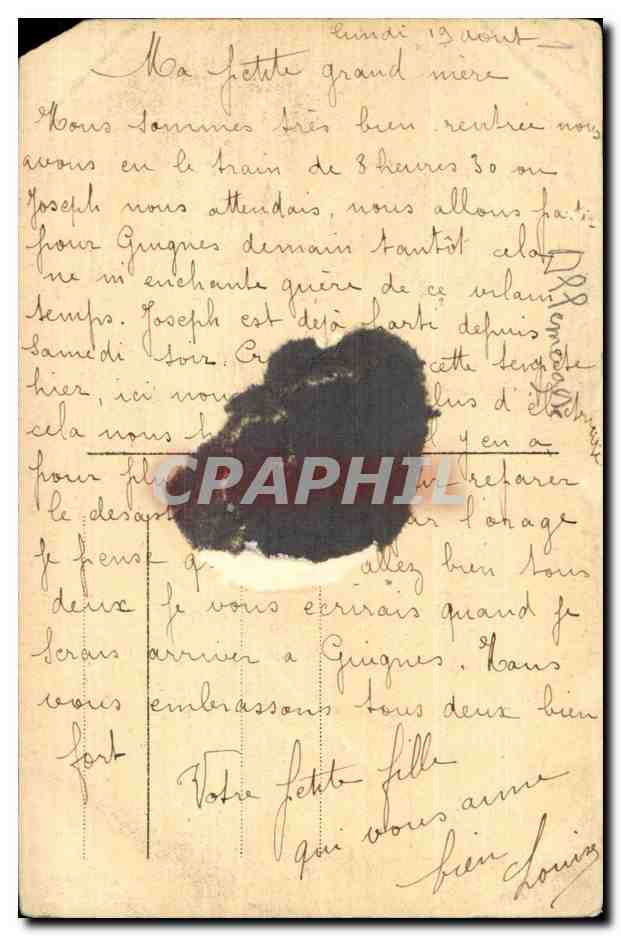 lundi 19 aout
Ma petite grand mère
Nous sommes très bien rentrée nous
avons eu le train de 8 heures 30 ou
Joseph nous attendais, nous allons partir
pour Guignes demain tantôt cela
ne m'enchante guère de ce vilain
temps. Joseph est déjà parti depuis
Samedi soir. cette tempête
hier, ici nou lus d'électricité
cela nous l y en a
pour plu ur reparer
le desast ar l'orage
Je pense q allez bien tous
deux Je vous ecrirais quand je
serais arriver a Guignes. Nous
vous embrassons tous deux bien
fort
Votre petite fille
qui vous aime
bien Louise
Allemagne
CPARHIL